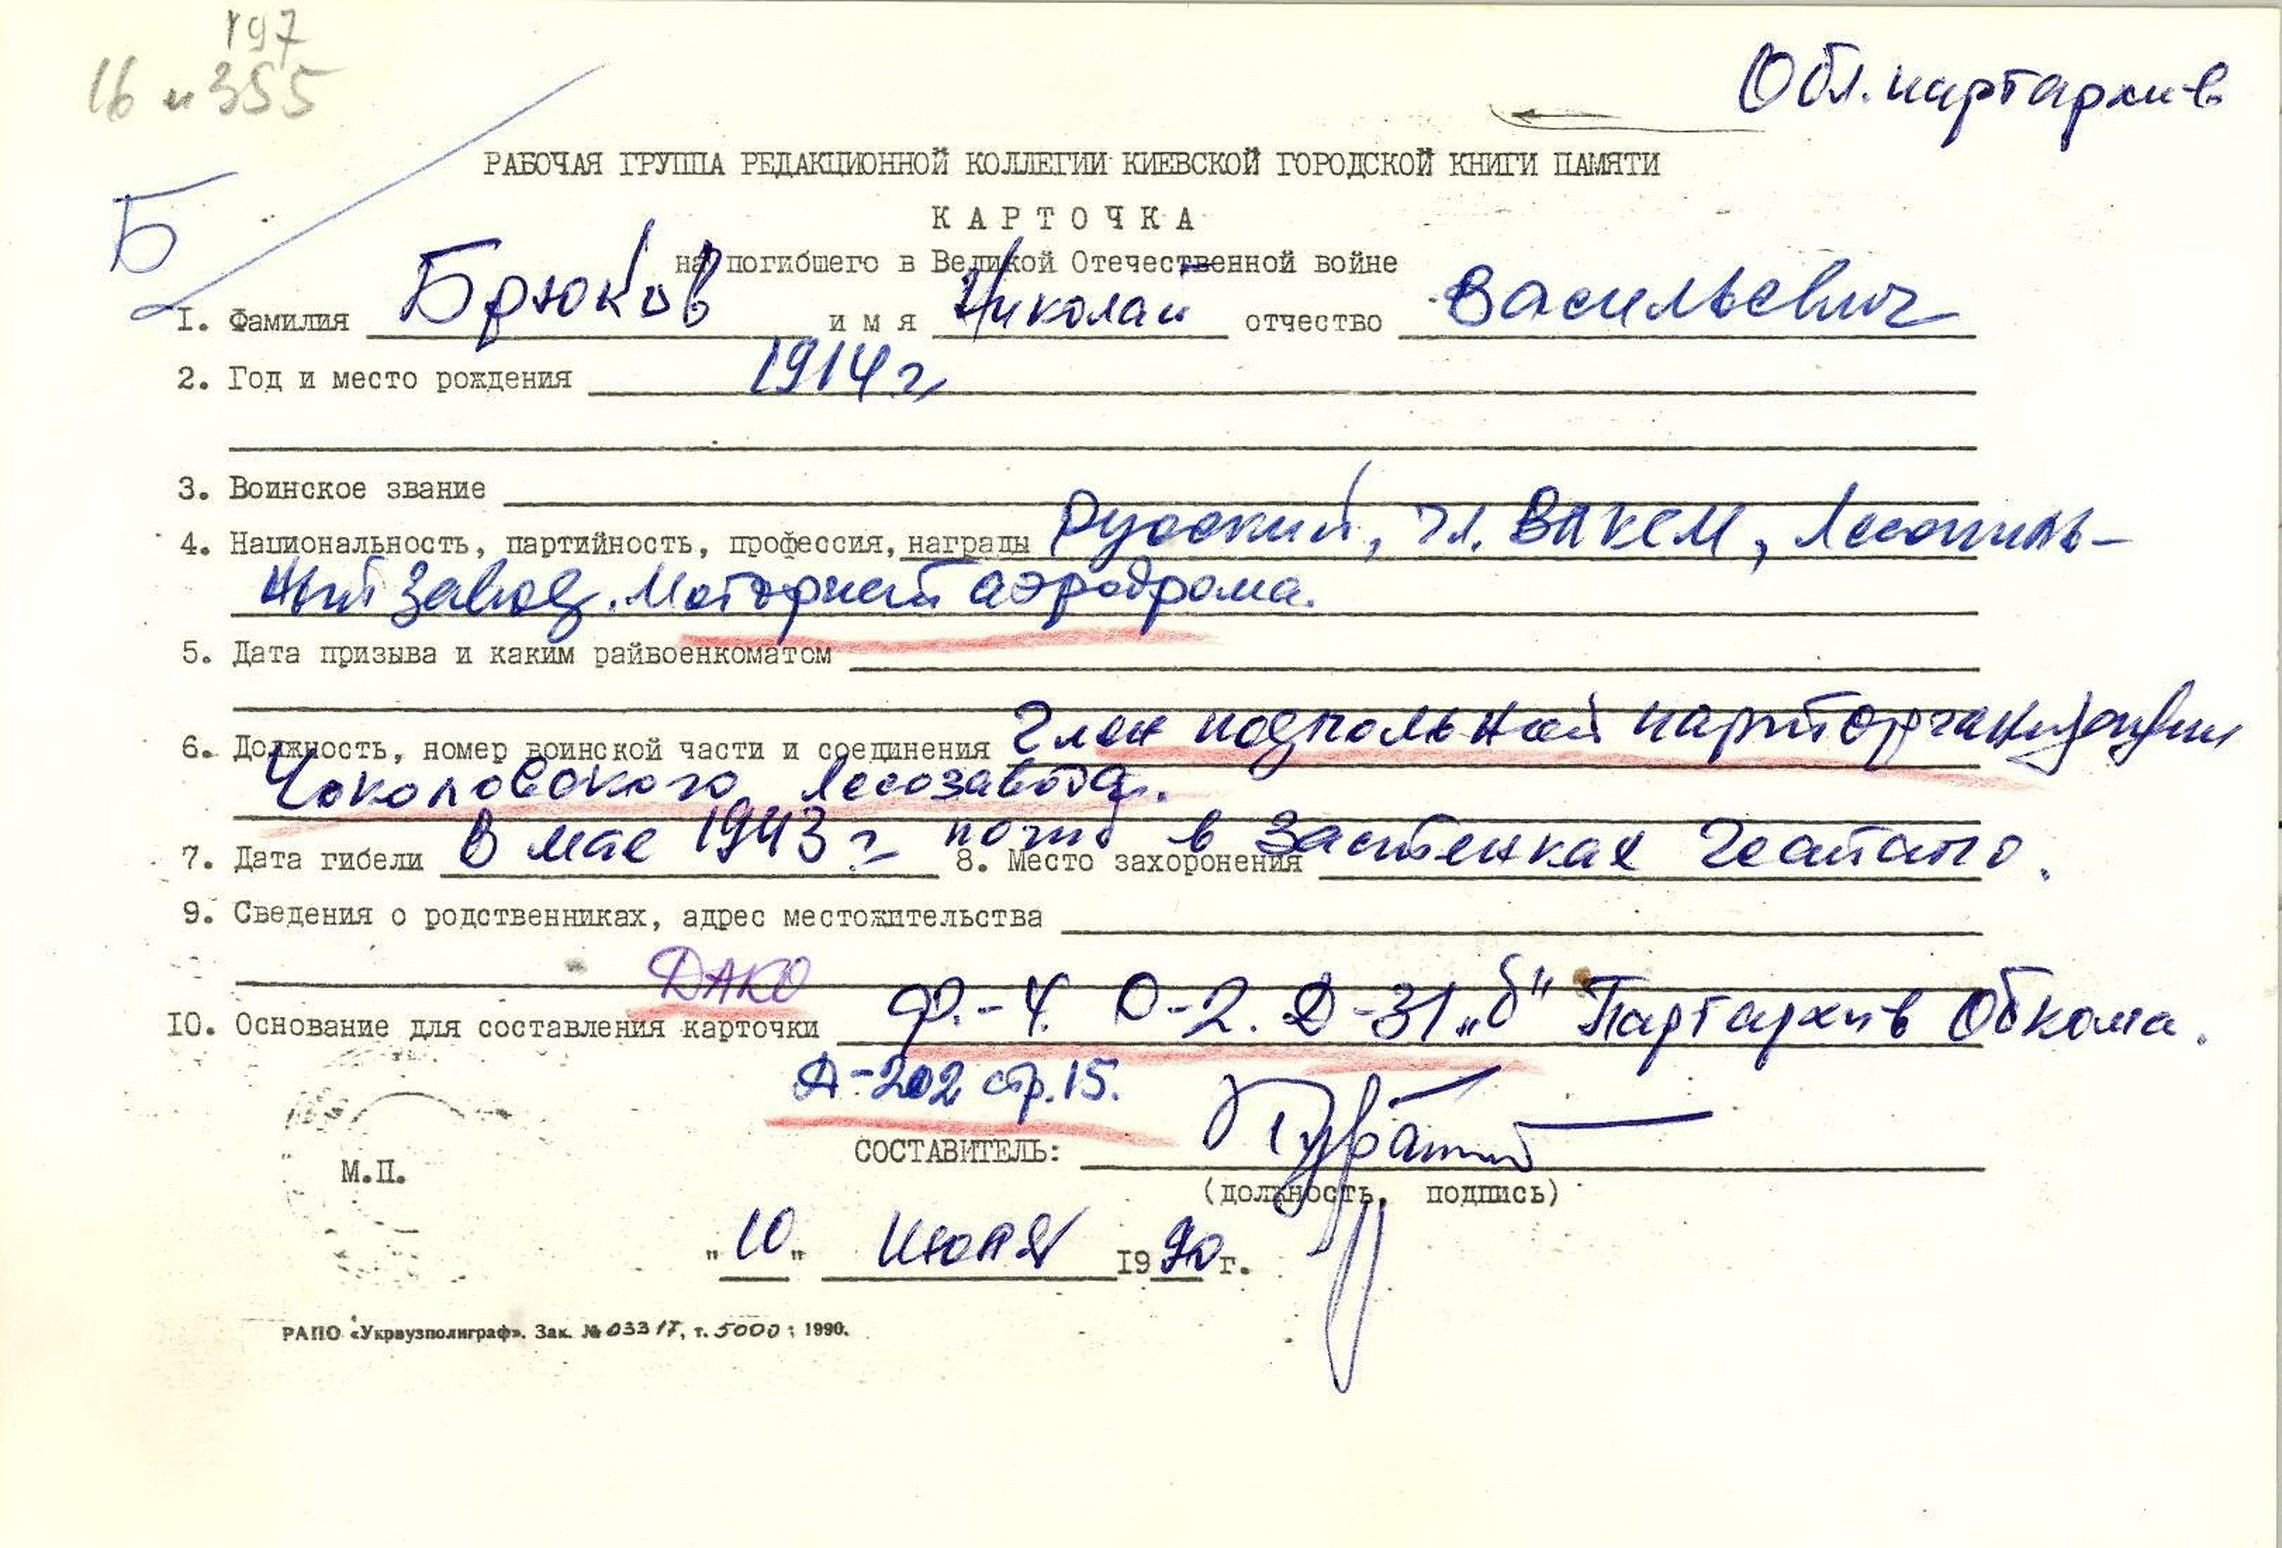 197
16 и 355
Обл. партархив
Б
РАБОЧАЯ ГРУППА РЕДАКЦИОННОЙ КОЛЛЕГИИ КИЕВСКОЙ ГОРОДСКОЙ КНИГИ ПАМЯТИ
КАРТОЧКА
на погибшего в Великой Отечественной войне
1. Фамилия Брюков имя Николай отчество Васильевич
2. Год и место рождения 1914 г.
3. Воинское звание
4. Национальность, партийность, профессия, награды Русский, чл. ВЛКСМ, Лесопиль-
ный завод. Моторист аэродрома.
5. Дата призыва и каким райвоенкоматом
6. Должность, номер воинской части и соединения Член подпольной парторганизации
Чоколовского лесозавода.
7. Дата гибели В мае 1943 г. погиб в застенках Гестапо. 8. Место захоронения
9. Сведения о родственниках, адрес местожительства
ДАКО
10. Основание для составления карточки Ф.-4. О-2. Д-31 „б" Партархив Обкома.
Д-202 стр. 15.
СОСТАВИТЕЛЬ:
(должность, подпись)
М.П.
„10" июля 1990 г.
РАПО «Укрвузполиграф». Зак. № 03317, т. 5000; 1990.